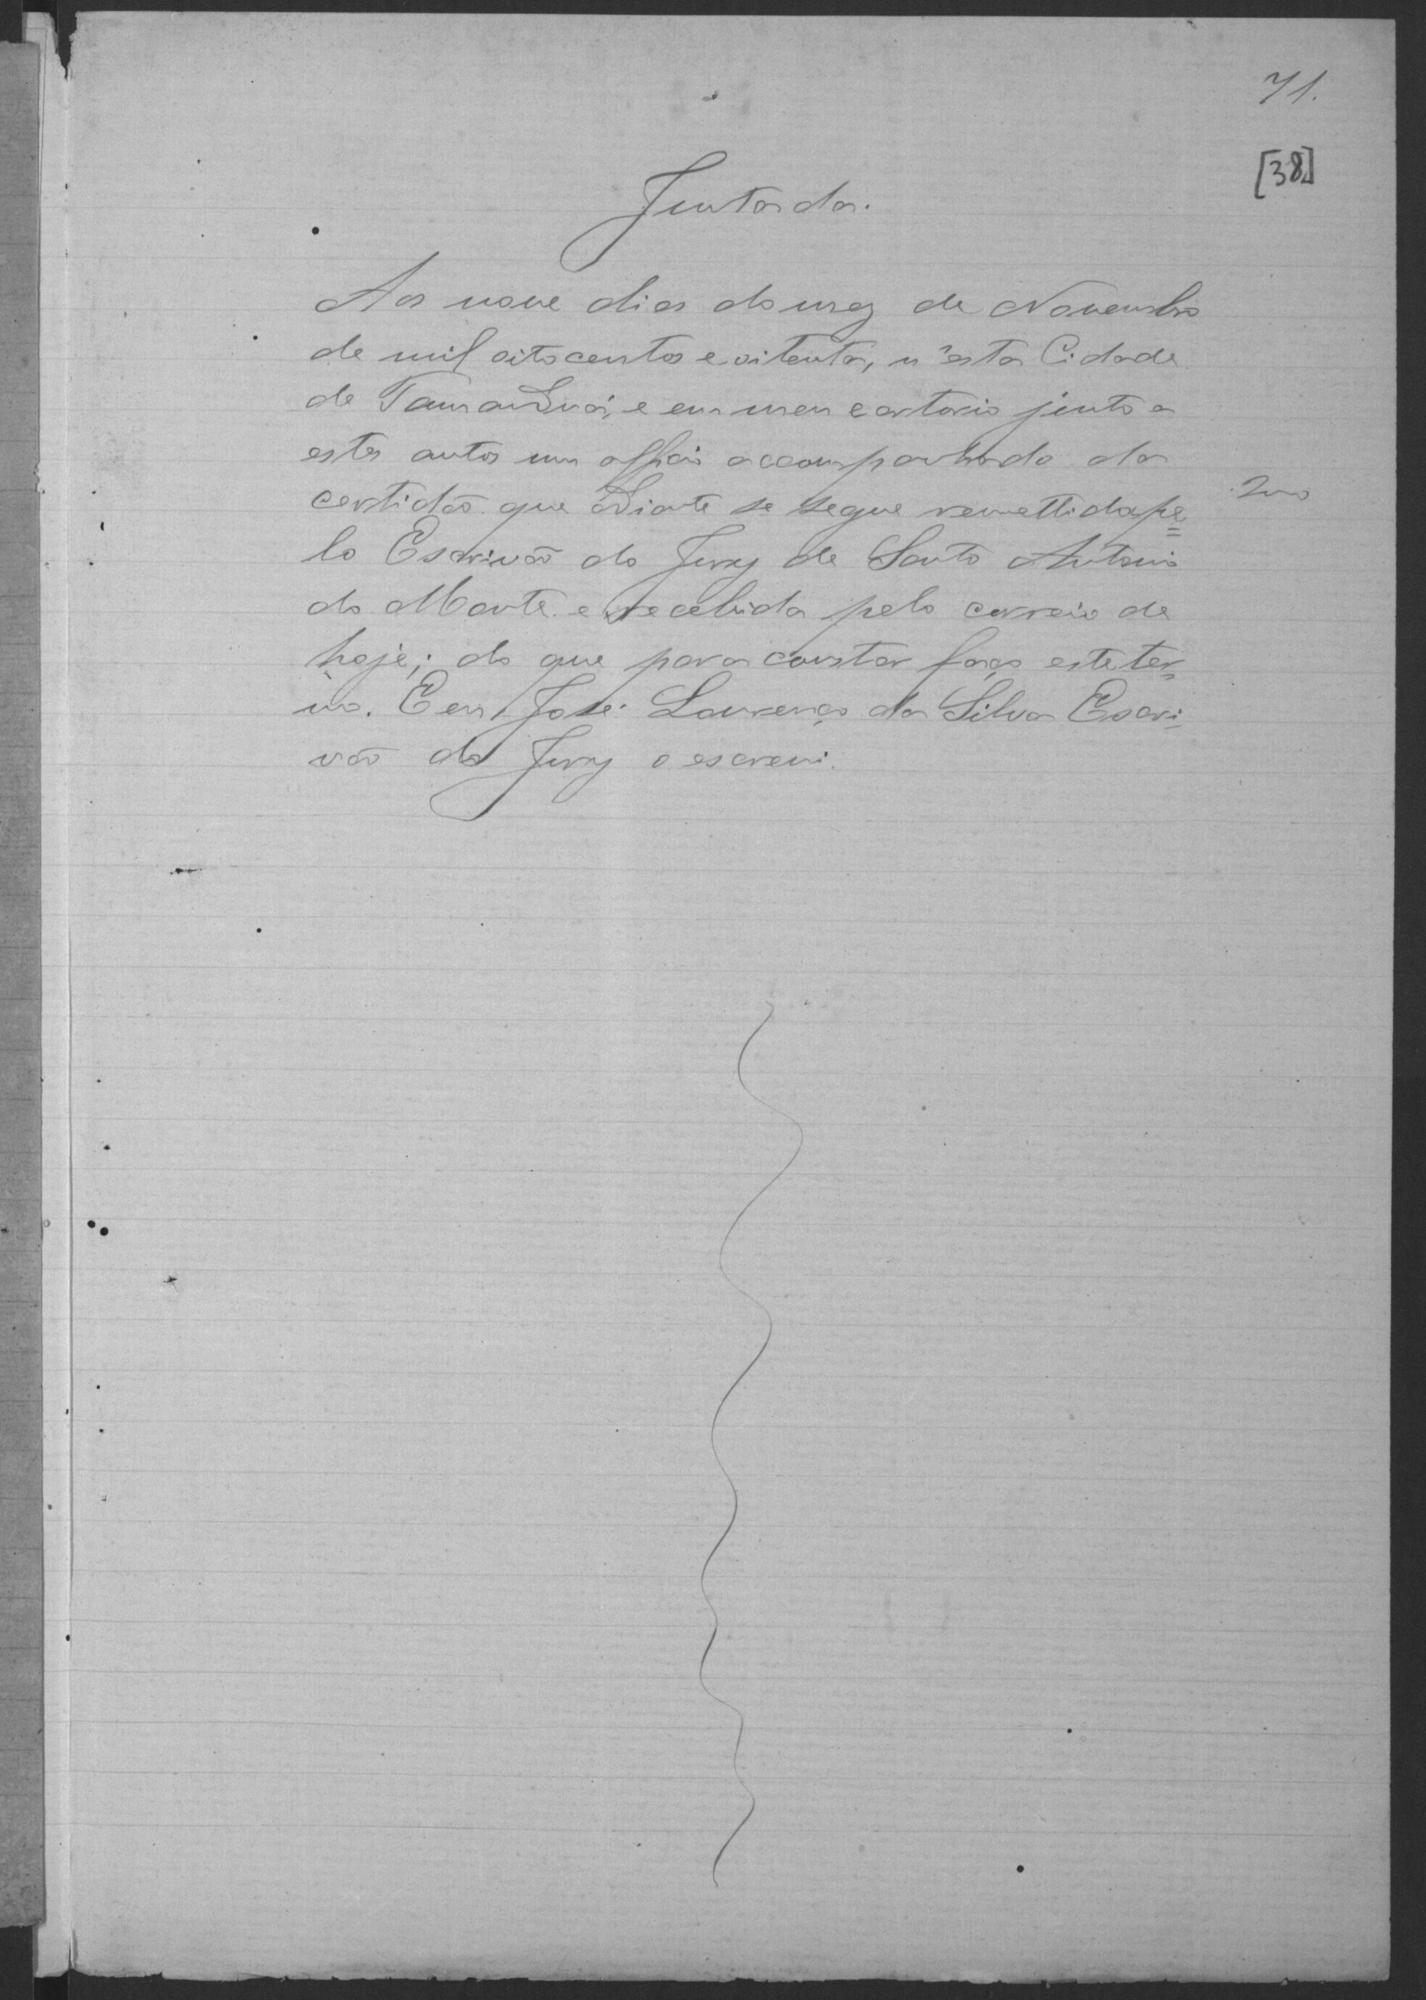 71.
[38]
Juntada.
Aos nove dias do mez de Novembro
de mil oitocentos e oitenta, n'esta Cidade
de Tamanduá, e em meu cartorio junto a
estes autos um officio accompanhado da
certidão que adiante se segue remettida pe=
lo Escrivão do Jury de Santo Antonio
do Monte e recebida pelo correio de
hoje; do que para constar faço este ter=
mo. Eu José Lourenço da Silva Escri=
vão do Jury o escrevi.